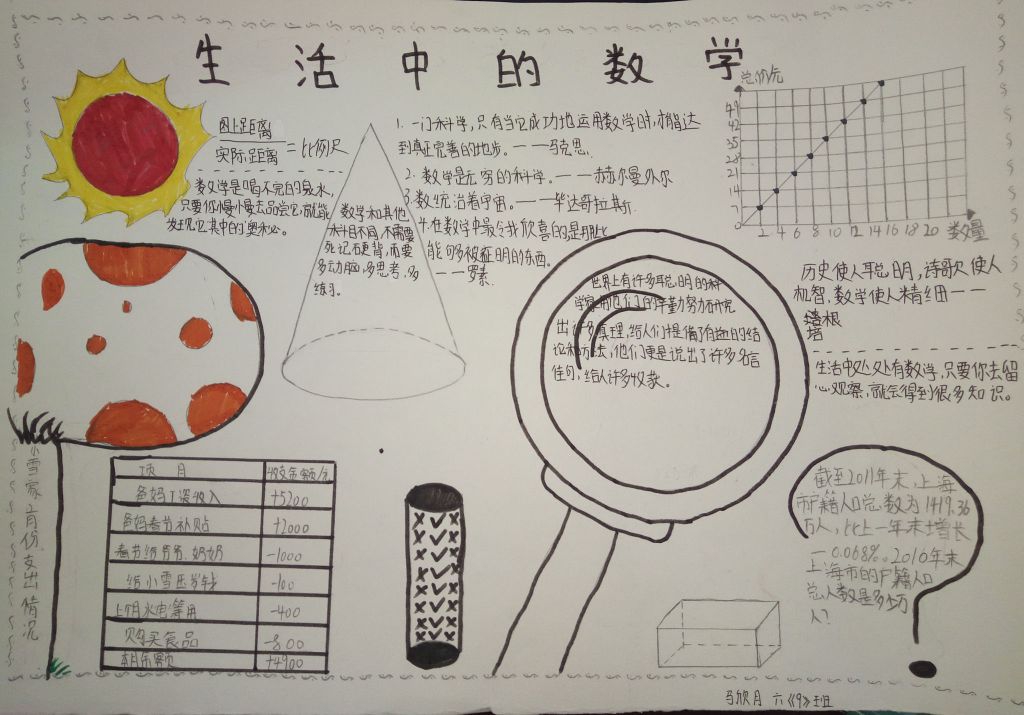 生活中的数学
图上距离
实际距离
=比例尺
数学是喝不完的泉水,
只要你慢慢去品尝它,就能
发现它其中的奥秘。
数学和其他
科目不同,不需要
死记石更背,而要
多动脑,多思考,多
练习。
1. 一门科学,只有当它成功地运用数学时,才能达
到真正完善的地步。——马克思.
2. 数学是无穷的科学。——赫尔曼外尔
3.数统治着宇宙。——毕达哥拉斯.
4.在数学中最令我欣喜的是那些
能够被证明的东西.
——罗素.
总价/元
49
42
35
28
21
14
7
0
2 4 6 8 10 12 14 16 18 20 数量
历史使人聪明,诗歌使人
机智,数学使人精细——
培根
培
生活中处处有数学,只要你去留
心观察,就会得到很多知识。
世界上有许多聪明的科
学家用他们的辛勤努力研究
出许多真理,给人们提倡了有益的结
论和方法,他们更是说出了许多名言
佳句,给人许多收获。
小雪家一月份支出情况
项 目 收支余额/元
爸妈工资收入 +5200
爸妈春节补贴 +2000
春节给爷爷、奶奶 -1000
给小雪压岁钱 -100
上个月水电等用 -400
购买食品 -800
本月余额 +4900
截至2011年末,上海
市户籍人口总数为1419.36
万人,比上一年末增长
-0.068%。2010年末
上海市的户籍人口
总人数是多少万
人?
马欣月 六《9》班